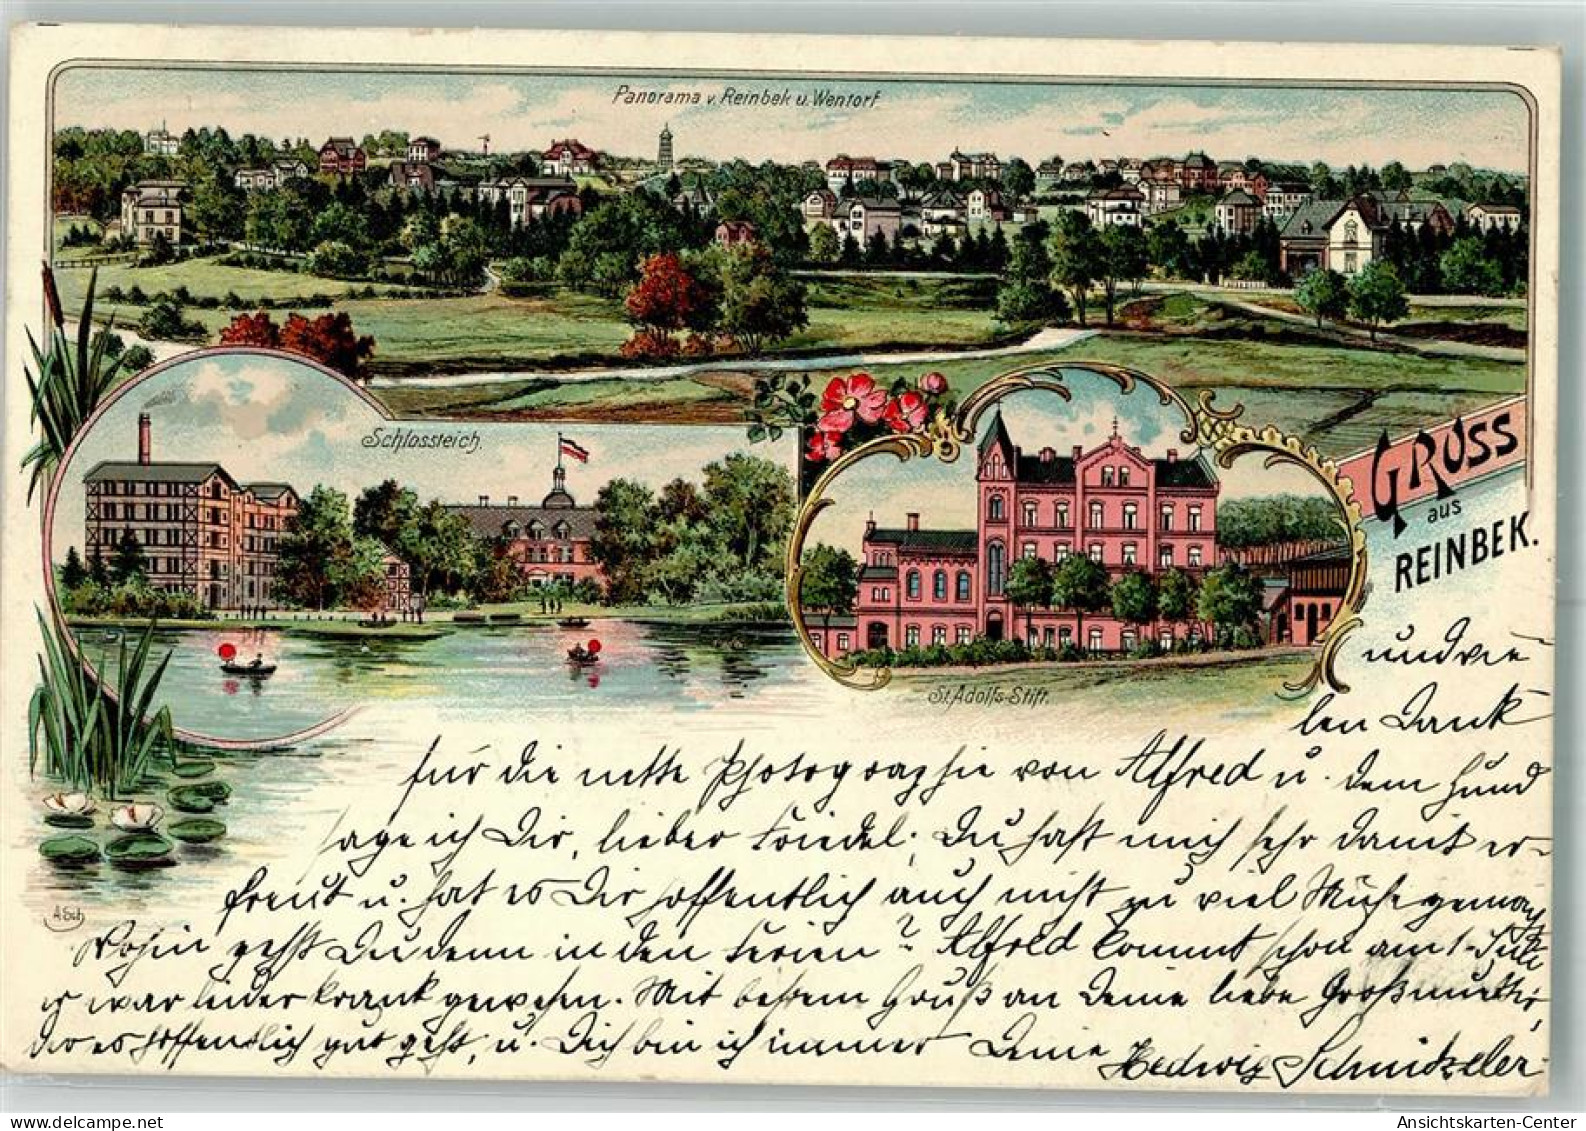 Panorama v. Reinbek u. Wentorf
Schlossteich.
St. Adolfs-Stift.
GRUSS
aus
REINBEK.
und vie-
len Dank
für die nette Photographie von Alfred u. dem Hund
sage ich Dir, lieber Friedel. Du hast mich sehr damit er-
freut u. hat es Dir hoffentlich auch nicht zu viel Mühe gemacht
Wohin gehst Du denn in den Ferien? Alfred kommt schon am 1. Juli
er war leider krank gewesen. Mit bestem Gruß an Deine liebe Großmutter,
der es hoffentlich gut geht, u. Dich bin ich immer Deine Hedwig Schmitzeler
A. Sch
Ansichtskarten-Center